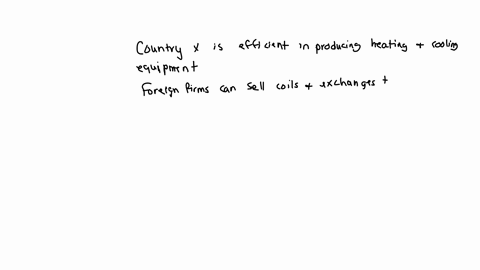 Country x is efficient in producing heating + cooling
equipment
Foreign firms can sell coils + exchanges t